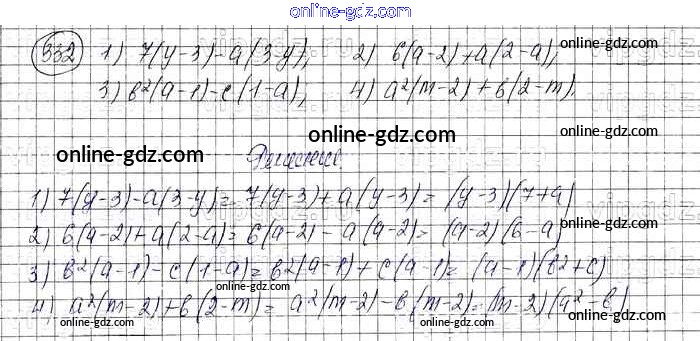 online-gdz.com
332 1) 7(y-3)-a(3-y), 2) 6(a-2)+a(2-a),
online-gdz.com
3) b²(a-1)-c(1-a), 4) a²(m-2)+b(2-m).
online-gdz.com
online-gdz.com
Решение.
online-gdz.com
1) 7(y-3)-a(3-y)=7(y-3)+a(y-3)=(y-3)(7+a)
2) 6(a-2)+a(2-a)=6(a-2)-a(a-2)=(a-2)(6-a)
online-gdz.com
3) b²(a-1)-c(1-a)=b²(a-1)+c(a-1)=(a-1)(b²+c)
4) a²(m-2)+b(2-m)=a²(m-2)-b(m-2)=(m-2)(a²-b)
online-gdz.com
online-gdz.com
online-gdz.com